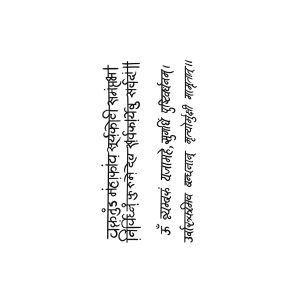 वक्रतुंड महाकाय सूर्यकोटी समप्रभ।
निर्विघ्नं कुरुमे देव सर्वकार्येषु सर्वदा॥
ॐ त्र्यम्बकं यजामहे, सुगन्धिं पुष्टिवर्धनम्।
उर्वारुकमिव बन्धनान् मृत्योर्मुक्षी मामृतात्॥